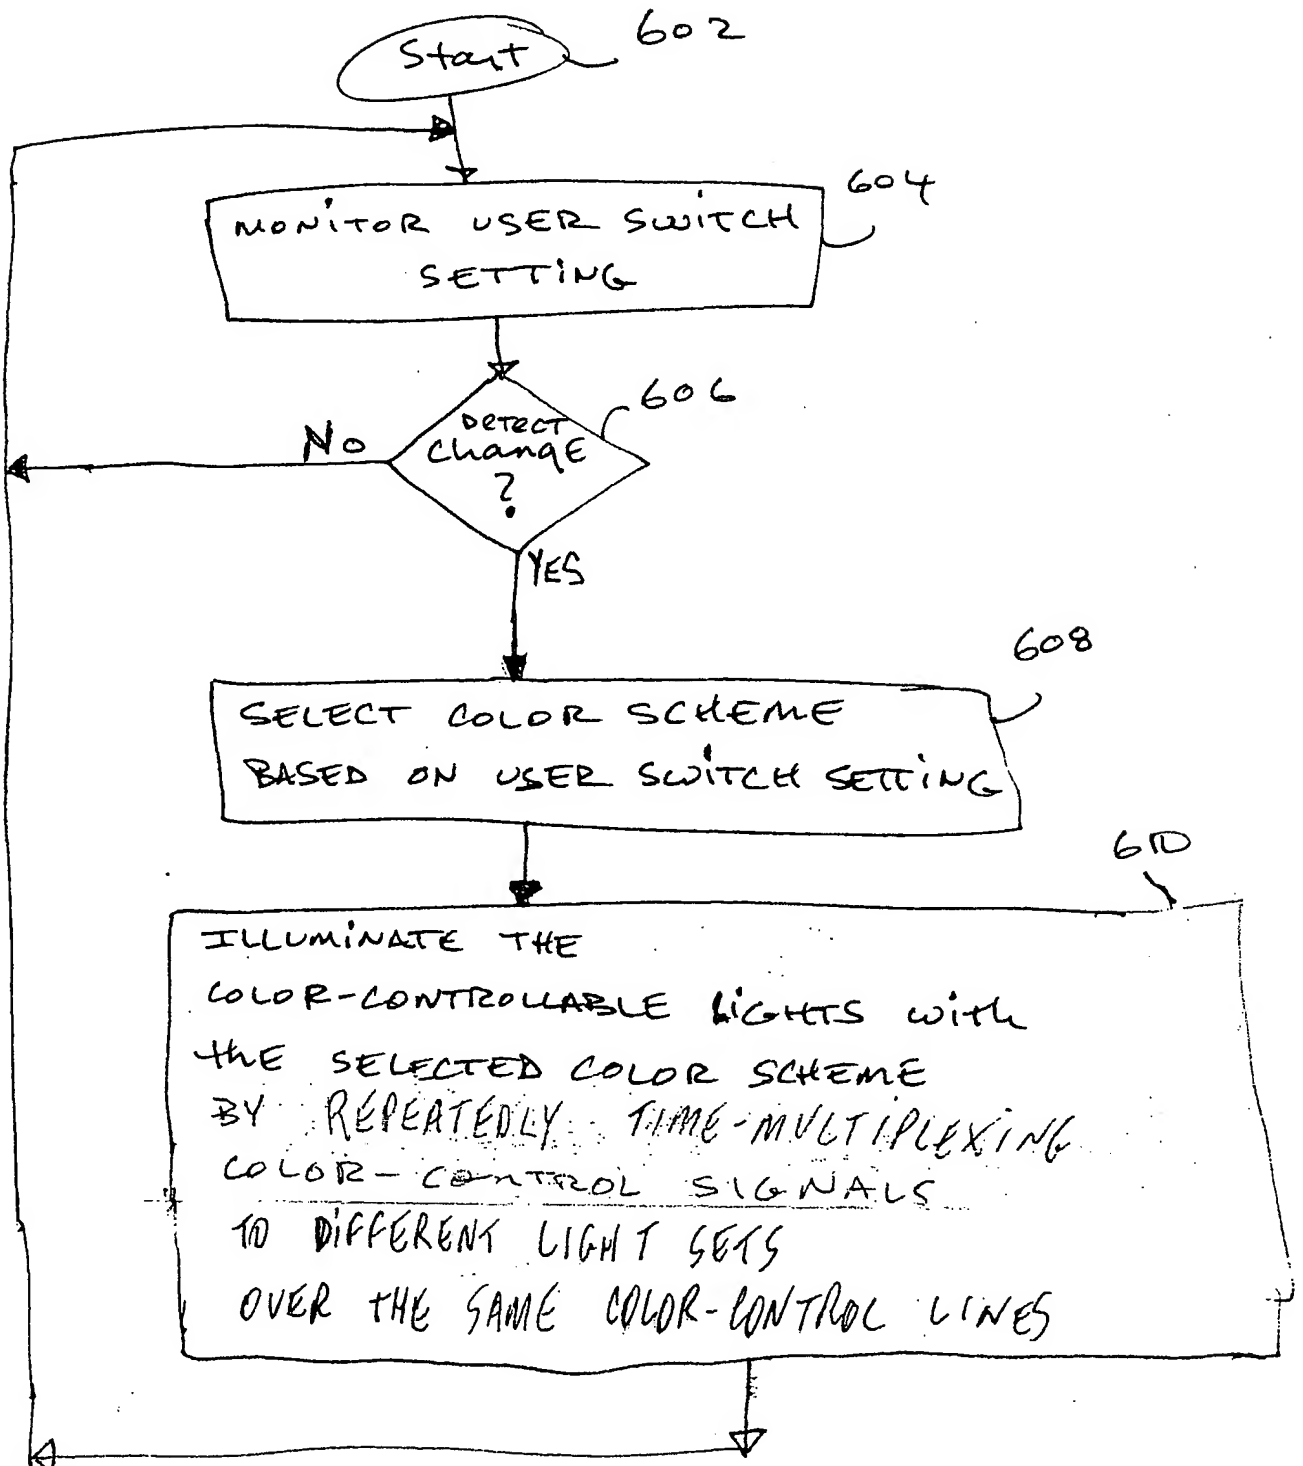 Start
602
MONITOR USER SWITCH
SETTING
604
DETECT
change
?
606
No
YES
608
SELECT COLOR SCHEME
BASED ON USER SWITCH SETTING
610
ILLUMINATE THE
COLOR-CONTROLLABLE LIGHTS with
the SELECTED COLOR SCHEME
BY REPEATEDLY TIME-MULTIPLEXING
COLOR-CONTROL SIGNALS
TO DIFFERENT LIGHT SETS
OVER THE SAME COLOR-CONTROL LINES